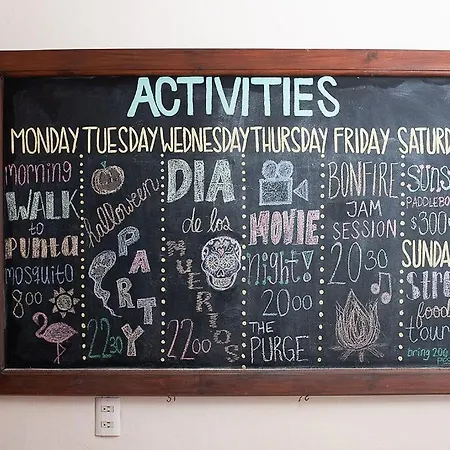 ACTIVITIES
MONDAY
morning
WALK
to
PUNTA
mosquito
8oo
TUESDAY
halloween
PARTY
22 30
WEDNESDAY
DIA
de los
MUERTOS
22oo
THURSDAY
MOVIE
night!
20oo
THE
PURGE
FRIDAY
BONFIRE
JAM
SESSION
20 30
SATURD
SUNS
PADDLEBO
$300
SUNDA
STRE
food
tour
bring 200